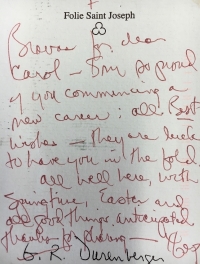 Folie Saint Joseph
Bravo dear
Carol - I'm so proud
of you commencing a
new career: all Best
wishes - they are lucky
to have you in the fold
all well here, with
Springtime, Easter and
all good things anticipated
Thanks for sharing -
G. R. Durenberger